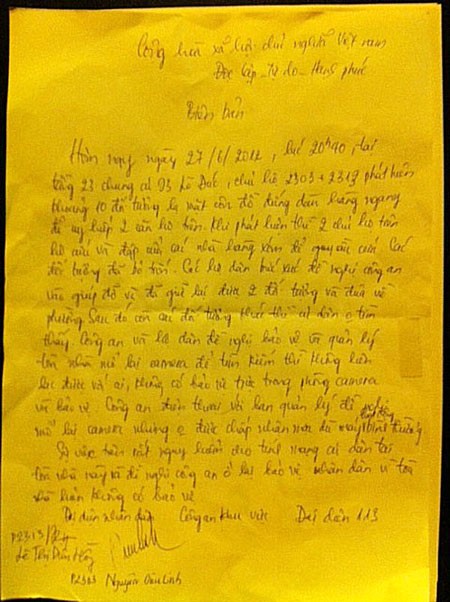 Cộng hòa xã hội chủ nghĩa Việt nam
Độc lập - Tự do - Hạnh phúc
Biên bản
Hôm nay ngày 27/6/2012, lúc 20h40, tại
tầng 23 chung cư 93 Lò Đúc, chủ hộ 2303 + 2313 phát hiện
khoảng 10 đối tượng lạ mặt côn đồ đứng dàn hàng ngang
để uy hiếp 2 căn hộ trên. Khi phát hiện thì 2 chủ hộ trên
hô cứu và đập cửa các nhà hàng xóm để cứu. Các
đối tượng đã bỏ trốn. Các hộ dân bức xúc đề nghị công an
vào giúp đỡ và đã giữ lại được 2 đối tượng và đưa về
phường. Sau đó còn các đối tượng khác thì cư dân ko tìm
thấy. Công an và hộ dân đề nghị bảo vệ và quản lý
tòa nhà mở lại camera để tìm kiếm thì không liên
lạc được với ai, không có bảo vệ trực trong phòng camera
và bảo vệ. Công an điện thoại với ban quản lý để
mở lại camera nhưng ko được chấp nhận
Sự việc trên rất nguy hiểm đe tính mạng cư dân tại
tòa nhà này và đề nghị công an ở lại bảo vệ nhân dân vì tòa
nhà hiện không có bảo vệ
Đại diện nhân dân Công an khu vực Đại diện 113
P2313
Lê Thị
P2303 Nguyễn Văn Linh